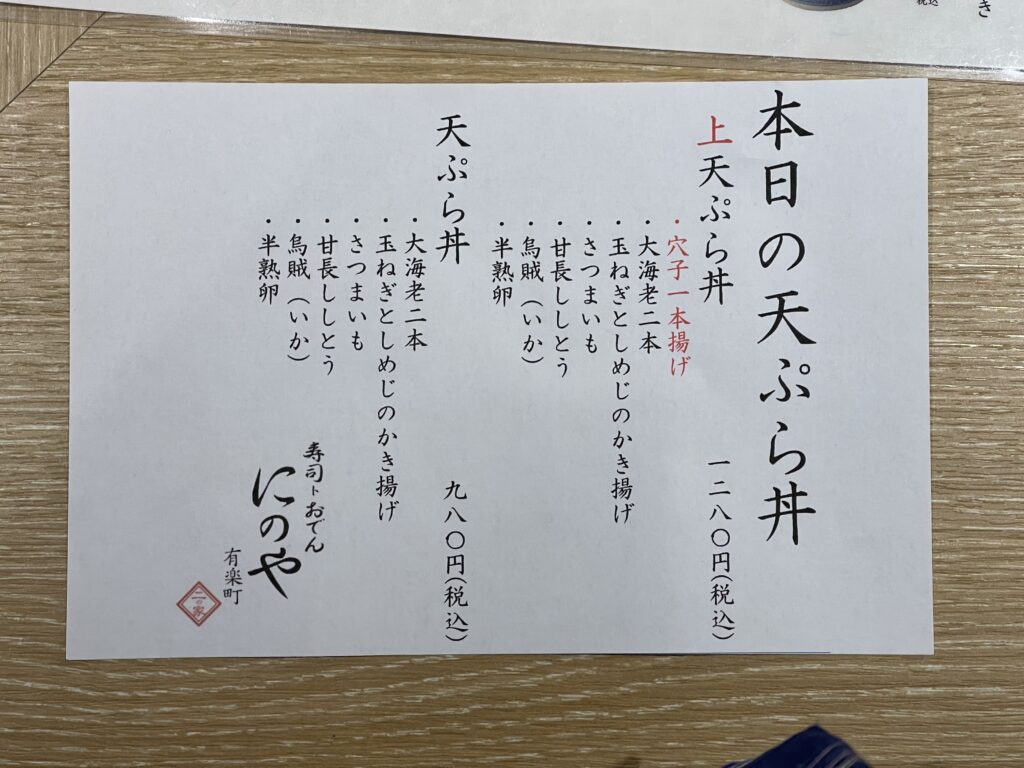 本日の天ぷら丼
上天ぷら丼 一二八〇円(税込)
・穴子一本揚げ
・大海老二本
・玉ねぎとしめじのかき揚げ
・さつまいも
・甘長ししとう
・烏賊(いか)
・半熟卵
天ぷら丼 九八〇円(税込)
・大海老二本
・玉ねぎとしめじのかき揚げ
・さつまいも
・甘長ししとう
・烏賊(いか)
・半熟卵
寿司トおでん
にのや
有楽町
二の家
き
税込